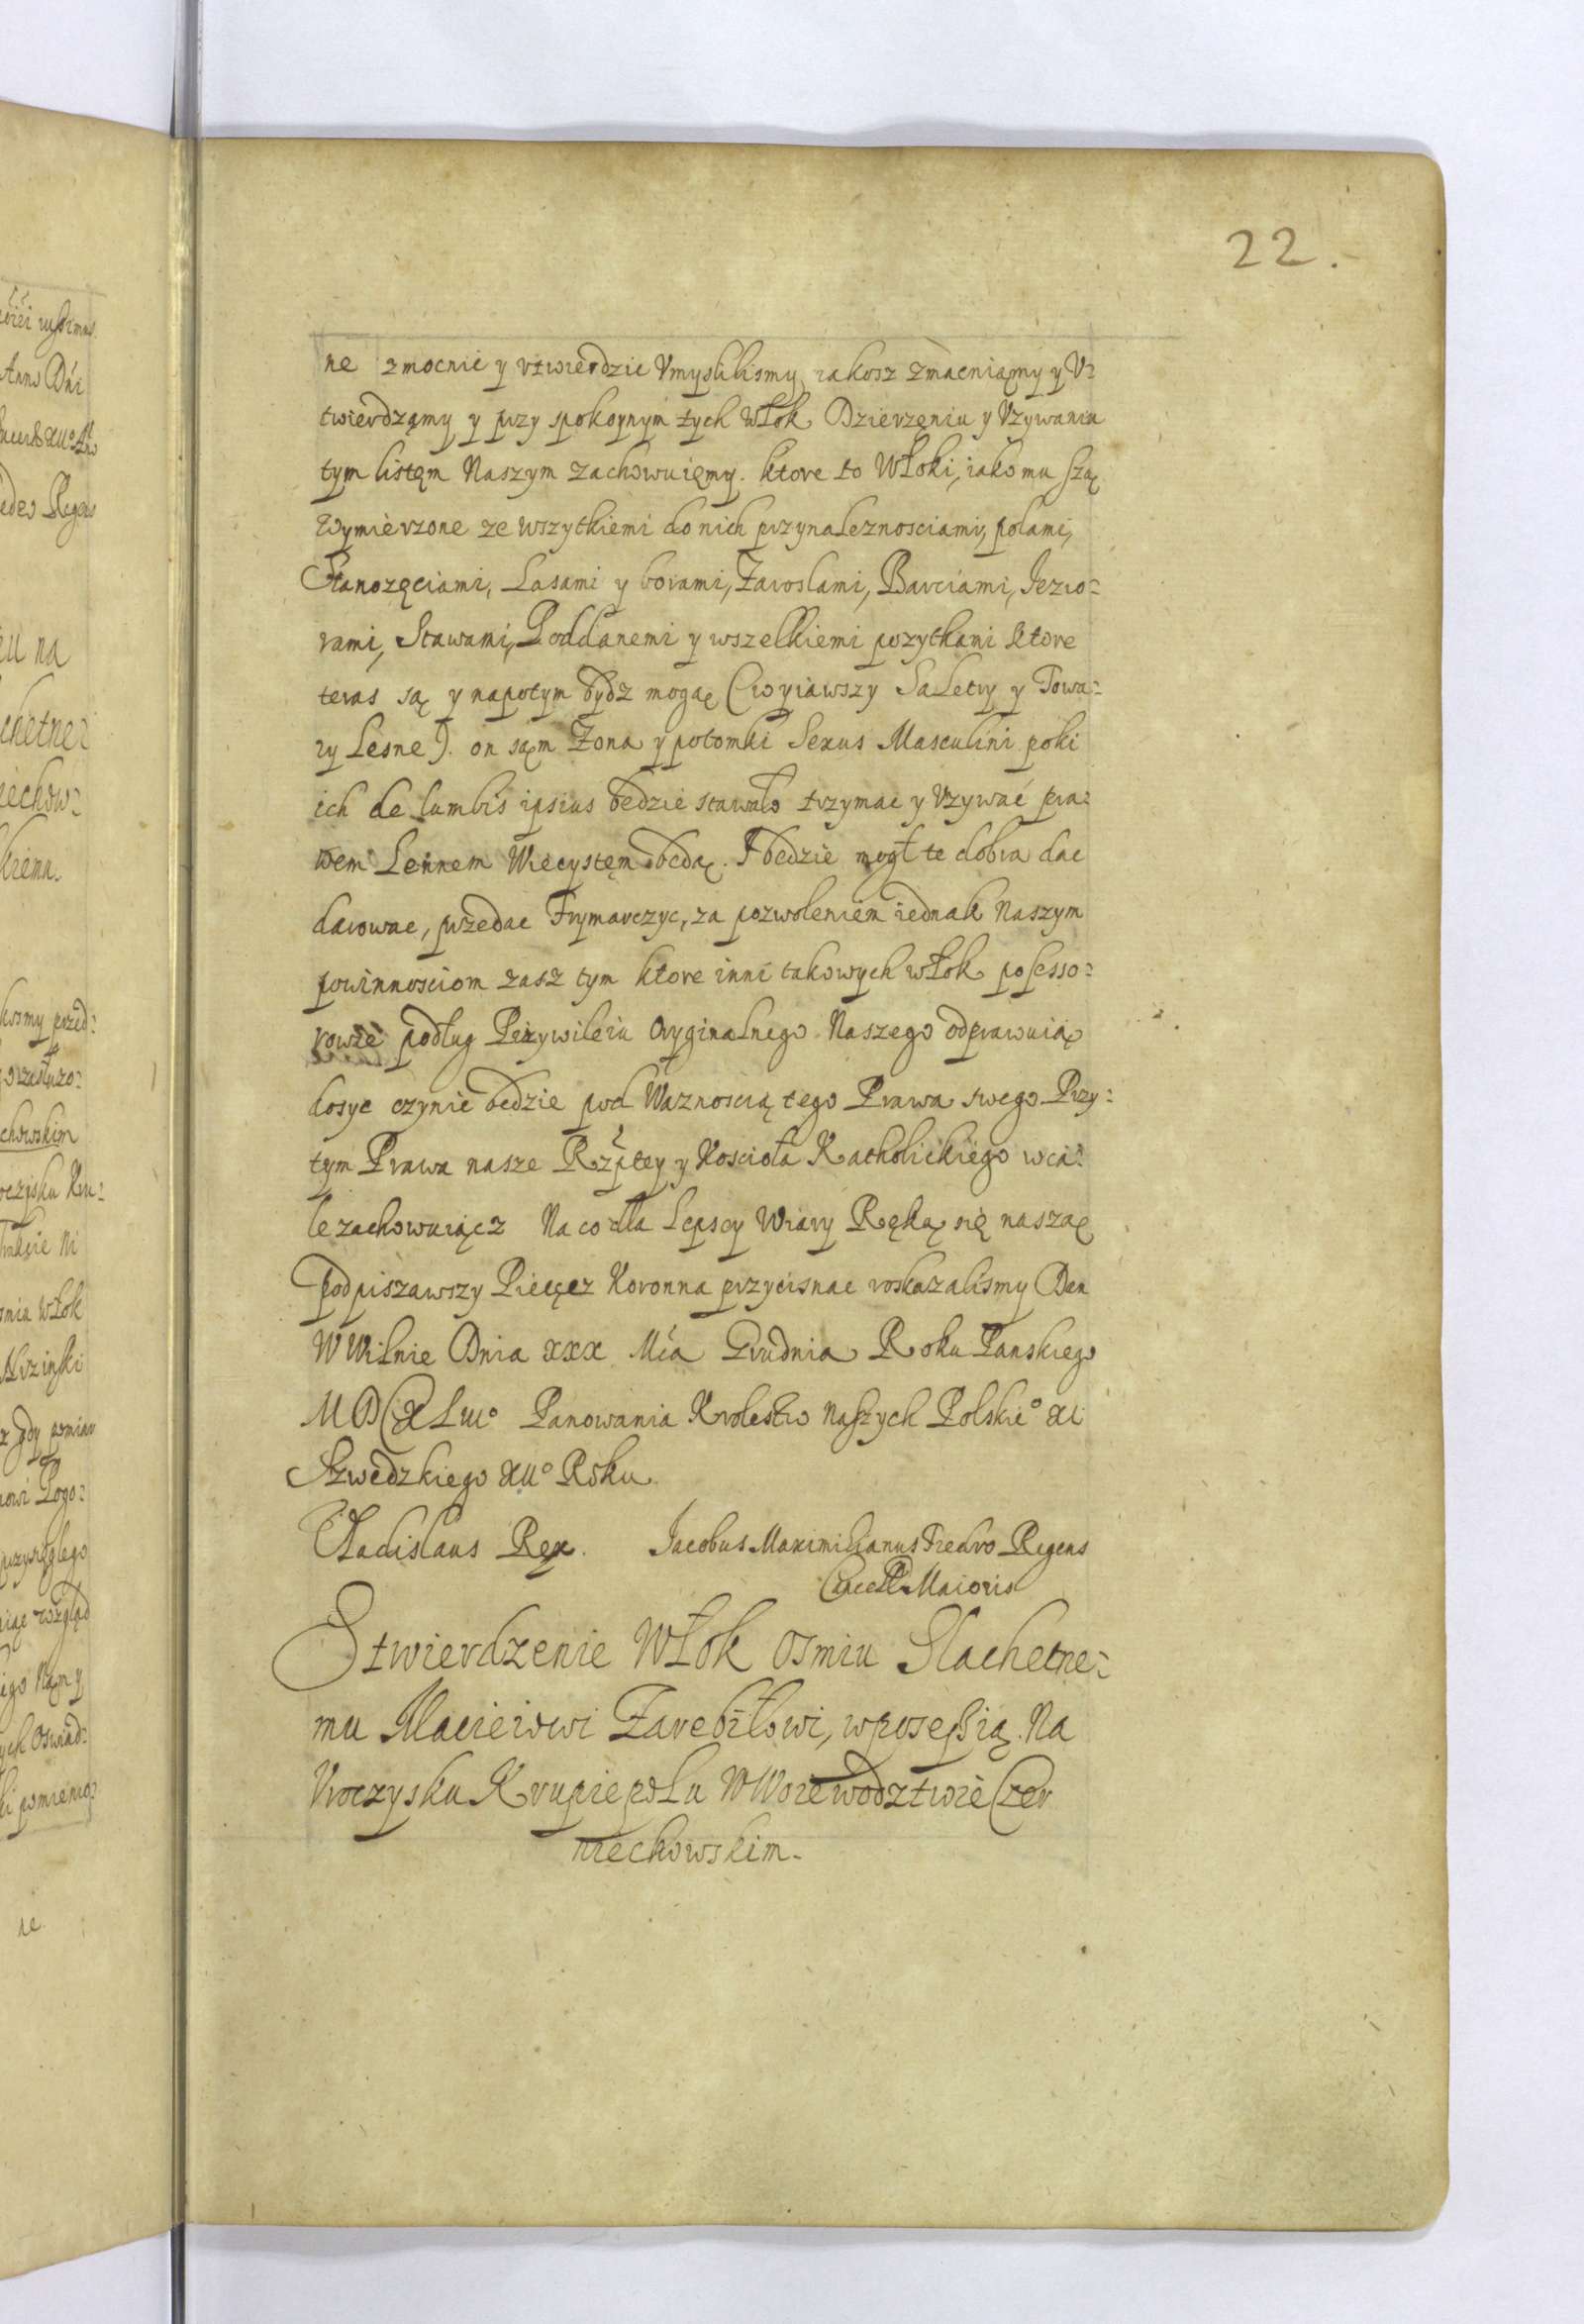 22.
ne zmocnić y vtwierdzic Vmyslilismy, iakosz zmacniąmy y V=
twierdząmy y przy spokoynym tych włok Dzierzęniu y Vzywania
tym listęm Naszym zachowuięmy. ktore to Włoki, iako mu szą
Wymierzone ze wszytkiemi do nich przynaleznosciami, polami,
Sianozęciami, Lasami y borami, Zaroslami, Barciami, Iezio=
rami, Stawami, Poddanemi y wszelkiemi pozytkami ktore
teras są y napotym bydz mogą (wyiawszy Saletry y Towa=
ry Lesne). on sąm Zona y potomki Sexus Masculini poki
ich de lumbis ipsius bedzie stawało trzymac y Vzywać pra=
wem Lennem Wiecystęm bedą. I bedzie mogł te dobra dac
darowac, przedac Frymarczyc, za pozwoleniem iednak Naszym
powinnosciom zasz tym ktore inni takowych włok possesso=
rowie podług Przywileiu Oryginalnego Naszego odprawuią
dosyc czynic bedzie pod Waznoscią tego Prawa swego. Przy=
tym Prawa nasze Rzptey y Koscioła Katholickiego wca=
le zachowuiącz Na co dla Lepscy Wiary Ręką się naszą
podpiszawszy Pieczęcz Koronna przycisnac roskazalismy Dan
W Wilnie Dnia xxx Mca Grudnia Roku Panskiego
Panowania Krolestw naszych Polskie° XI
Szwedzkiego XII° Roku
Vladislaus Rex. Jacobus Maximilianus Fredro Regens
Cancell Maioris
Stwierdzenie Włok Osmiu Slachetne=
mu Macieiowi Zarebiłowi, w posessią Na
Vroczysku Krupiepolu W Woiewodztwie Czer
niechowskim.